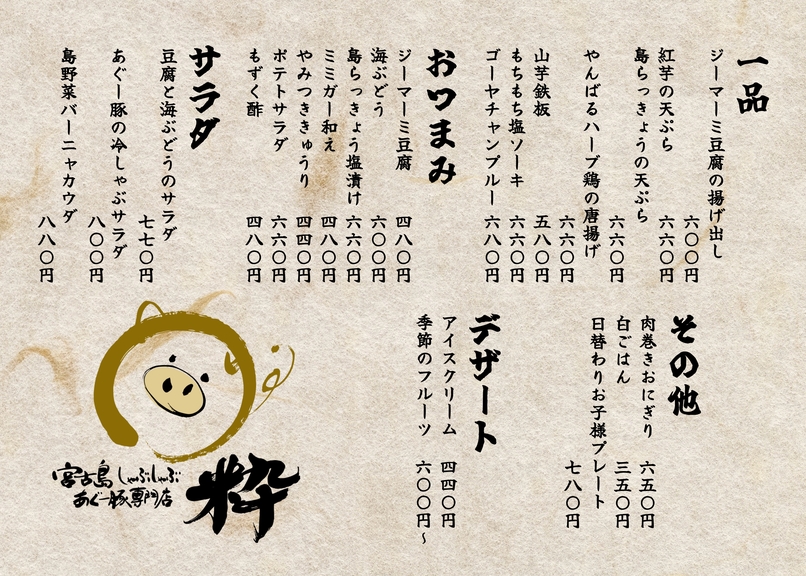 一品
ジーマーミ豆腐の揚げ出し
六〇〇円
紅芋の天ぷら
六六〇円
島らっきょうの天ぷら
六六〇円
やんばるハーブ鶏の唐揚げ
六六〇円
山芋鉄板
五八〇円
もちもち塩ソーキ
六六〇円
ゴーヤチャンプルー
六八〇円
おつまみ
ジーマーミ豆腐
四八〇円
海ぶどう
六〇〇円
島らっきょう塩漬け
六六〇円
ミミガー和え
四八〇円
やみつききゅうり
四四〇円
ポテトサラダ
六六〇円
もずく酢
四八〇円
サラダ
豆腐と海ぶどうのサラダ
七七〇円
あぐー豚の冷しゃぶサラダ
八〇〇円
島野菜バーニャカウダ
八八〇円
その他
肉巻きおにぎり
六五〇円
白ごはん
三五〇円
日替わりお子様プレート
七八〇円
デザート
アイスクリーム
四四〇円
季節のフルーツ
六〇〇円〜
宮古島しゃぶしゃぶ
あぐー豚専門店
粋